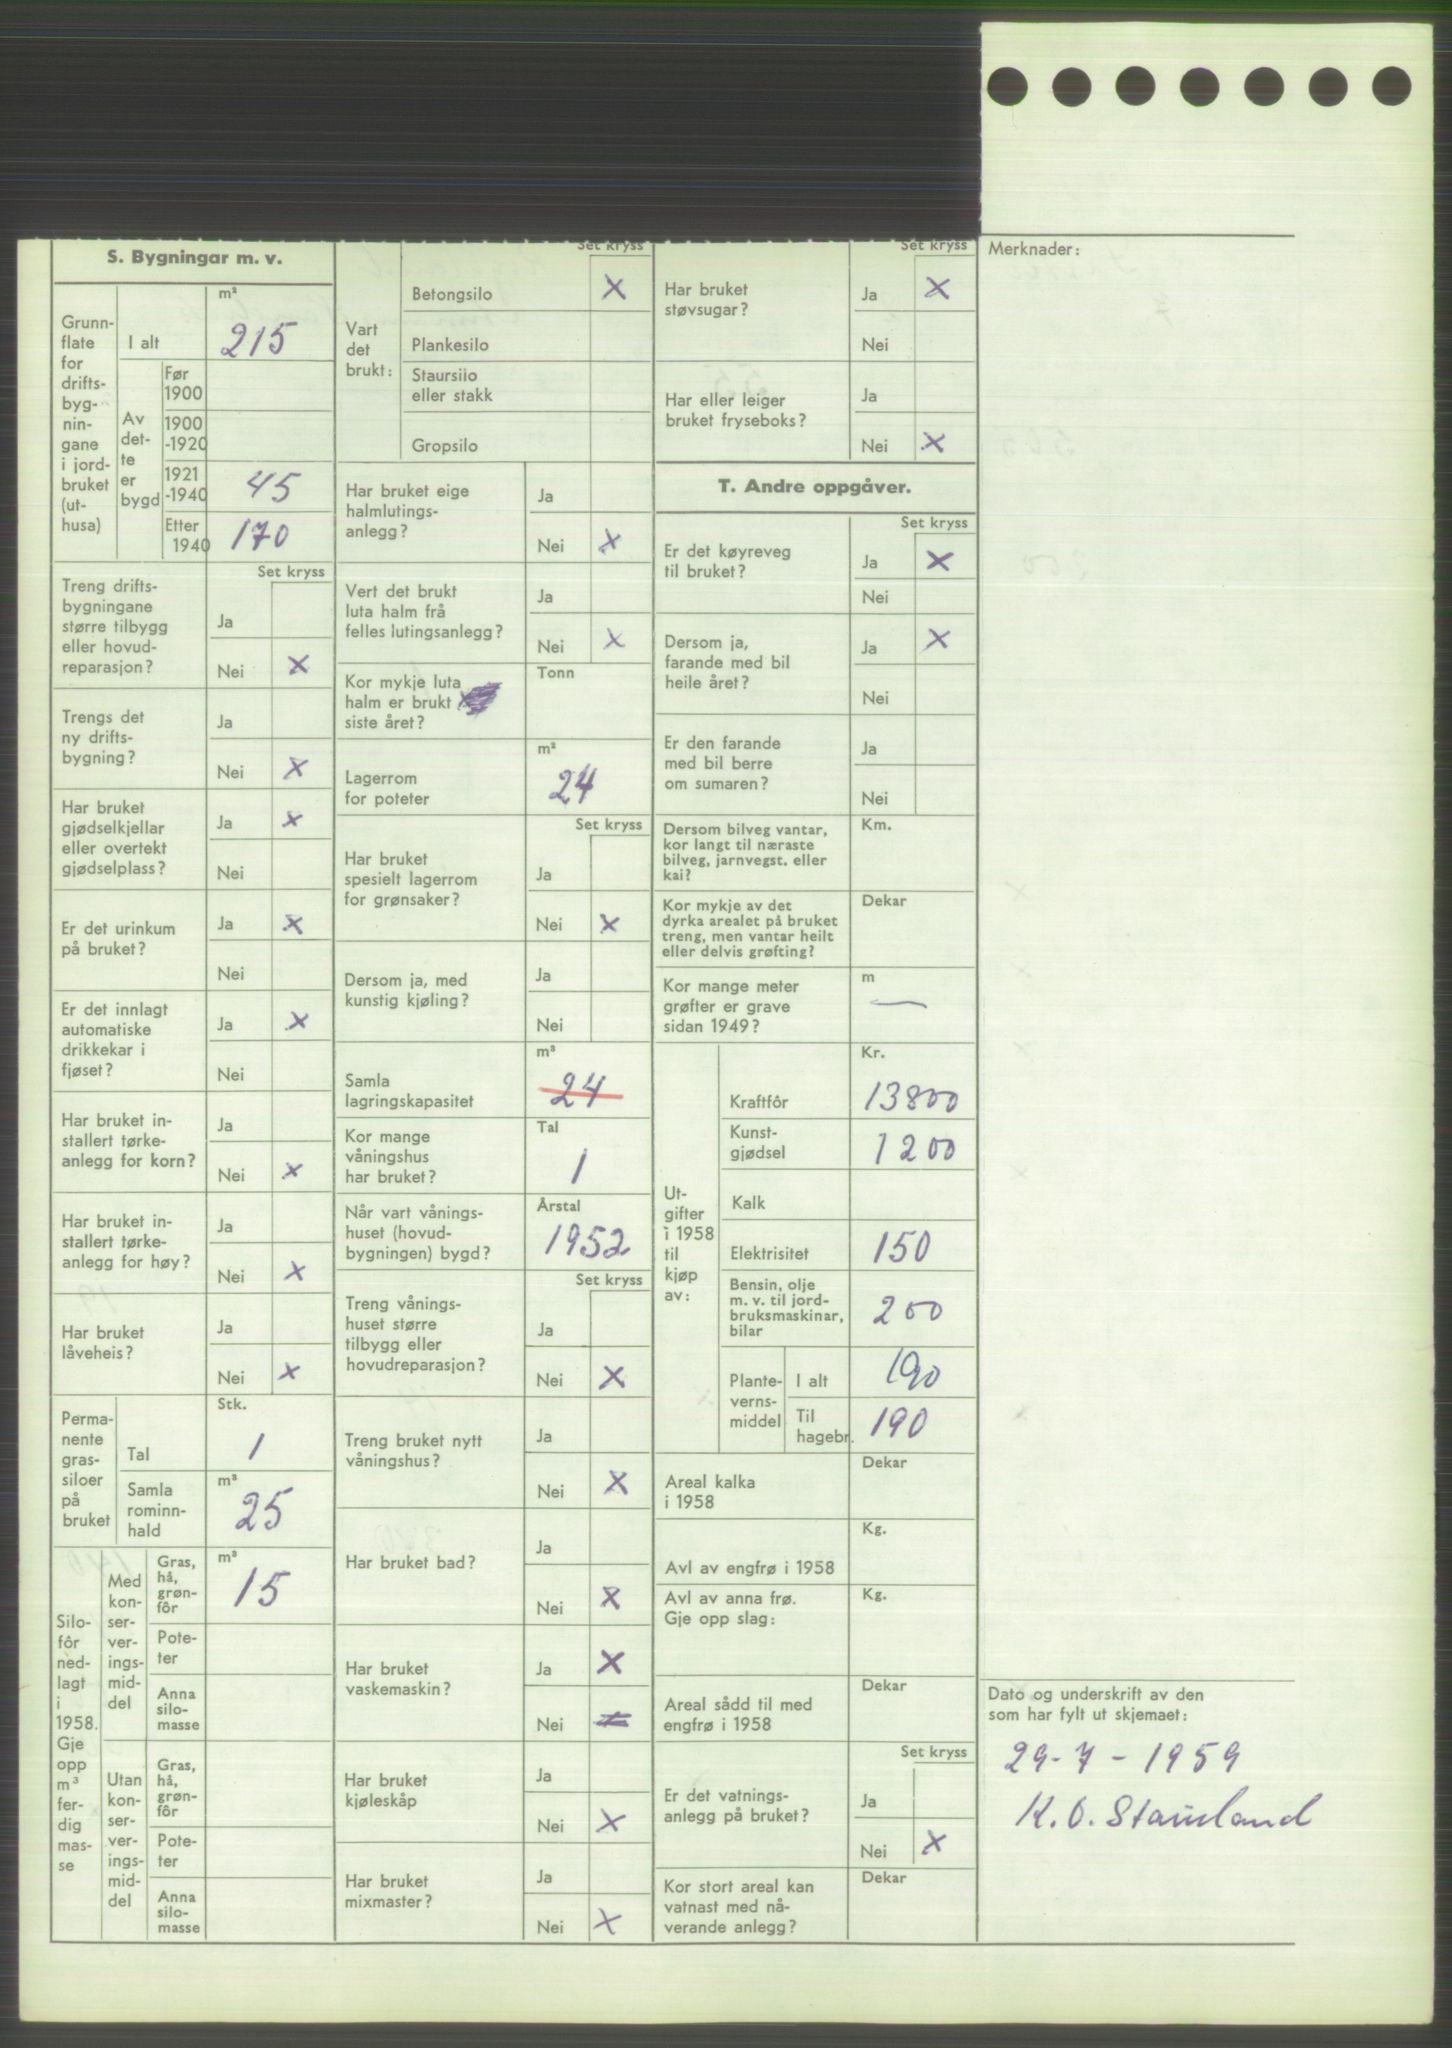 S. Bygningar m. v.
Grunn-
flate
for
drifts-
byg-
nin-
gane
i jord-
bruket
(ut-
husa)
I alt
m²
215
Av
det-
te
er
bygd
Før
1900
1900
-1920
1921
-1940
45
Etter
1940
170
Set kryss
Treng drifts-
bygningane
større tilbygg
eller hovud-
reparasjon?
Ja
Nei X
Trengs det
ny drifts-
bygning?
Ja
Nei X
Har bruket
gjødselkjellar
eller overtekt
gjødselplass?
Ja X
Nei
Er det urinkum
på bruket?
Ja X
Nei
Er det innlagt
automatiske
drikkekar i
fjøset?
Ja X
Nei
Har bruket in-
stallert tørke-
anlegg for korn?
Ja
Nei X
Har bruket in-
stallert tørke-
anlegg for høy?
Ja
Nei X
Har bruket
låveheis?
Ja
Nei X
Perma-
nente
gras-
siloer
på
bruket
Tal
Stk.
1
Samla
rominn-
hald
m³
25
Silo-
fôr
ned-
lagt
i
1958.
Gje
opp
m³
fer-
dig
mas-
se
Med
kon-
ser-
ver-
ings-
mid-
del
Gras,
hå,
grøn-
fôr
m³
15
Pote-
ter
Anna
silo-
masse
Utan
kon-
ser-
ver-
ings-
mid-
del
Gras,
hå,
grøn-
fôr
Pote-
ter
Anna
silo-
masse
Set kryss
Vart
det
brukt:
Betongsilo X
Plankesilo
Staursilo
eller stakk
Gropsilo
Har bruket eige
halmlutings-
anlegg?
Ja
Nei X
Vert det brukt
luta halm frå
felles lutingsanlegg?
Ja
Nei X
Kor mykje luta
halm er brukt
siste året?
Tonn
Lagerrom
for poteter
m²
24
Set kryss
Har bruket
spesielt lagerrom
for grønsaker?
Ja
Nei X
Dersom ja, med
kunstig kjøling?
Ja
Nei
Samla
lagringskapasitet
m³
24
Kor mange
våningshus
har bruket?
Tal
1
Når vart vånings-
huset (hovud-
bygningen) bygd?
Årstal
1952
Set kryss
Treng vånings-
huset større
tilbygg eller
hovudreparasjon?
Ja
Nei X
Treng bruket nytt
våningshus?
Ja
Nei X
Har bruket bad?
Ja
Nei X
Har bruket
vaskemaskin?
Ja X
Nei X
Har bruket
kjøleskåp
Ja
Nei X
Har bruket
mixmaster?
Ja
Nei X
Set kryss
Har bruket
støvsugar?
Ja X
Nei
Har eller leiger
bruket fryseboks?
Ja
Nei X
T. Andre oppgåver.
Set kryss
Er det køyreveg
til bruket?
Ja X
Nei
Dersom ja,
farande med bil
heile året?
Ja X
Nei
Er den farande
med bil berre
om sumaren?
Ja
Nei
Dersom bilveg vantar,
kor langt til næraste
bilveg, jarnvegst. eller
kai?
Km.
Kor mykje av det
dyrka arealet på bruket
treng, men vantar heilt
eller delvis grøfting?
Dekar
Kor mange meter
grøfter er grave
sidan 1949?
m
—
Ut-
gifter
i 1958
til
kjøp
av:
Kr.
Kraftfôr 13800
Kunst-
gjødsel 1200
Kalk
Elektrisitet 150
Bensin, olje
m. v. til jord-
bruksmaskinar,
bilar
200
Plante-
verns-
middel
I alt 190
Til
hagebr. 190
Areal kalka
i 1958
Dekar
Avl av engfrø i 1958
Kg.
Avl av anna frø.
Gje opp slag:
Kg.
Areal sådd til med
engfrø i 1958
Dekar
Set kryss
Er det vatnings-
anlegg på bruket?
Ja
Nei X
Kor stort areal kan
vatnast med nå-
verande anlegg?
Dekar
Merknader:
Dato og underskrift av den
som har fylt ut skjemaet:
29-7-1959
K. O. Stausland